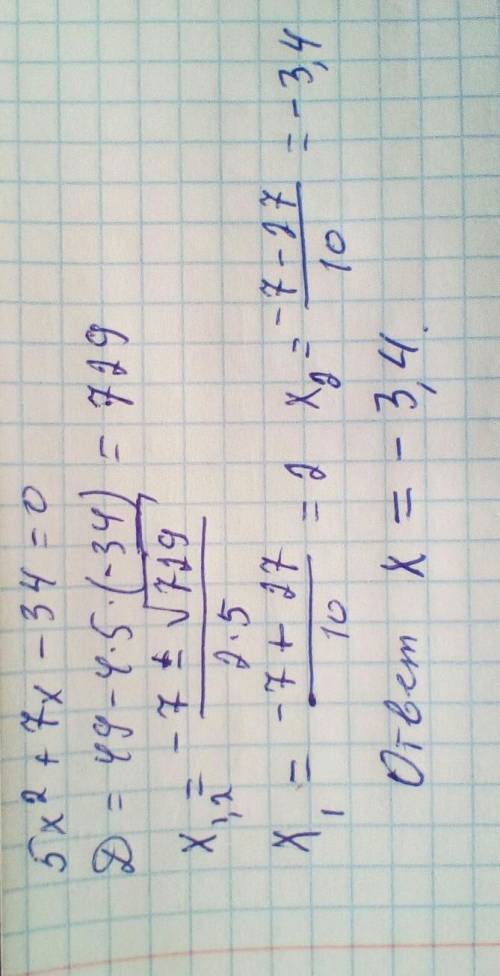 5x² + 7x - 34 = 0
D = 49 - 4·5·(-34) = 729
x₁,₂ = (-7 ± √729) / (2·5)
x₁ = (-7 + 27) / 10 = 2 x₂ = (-7 - 27) / 10 = -3,4
Ответ x = -3,4.